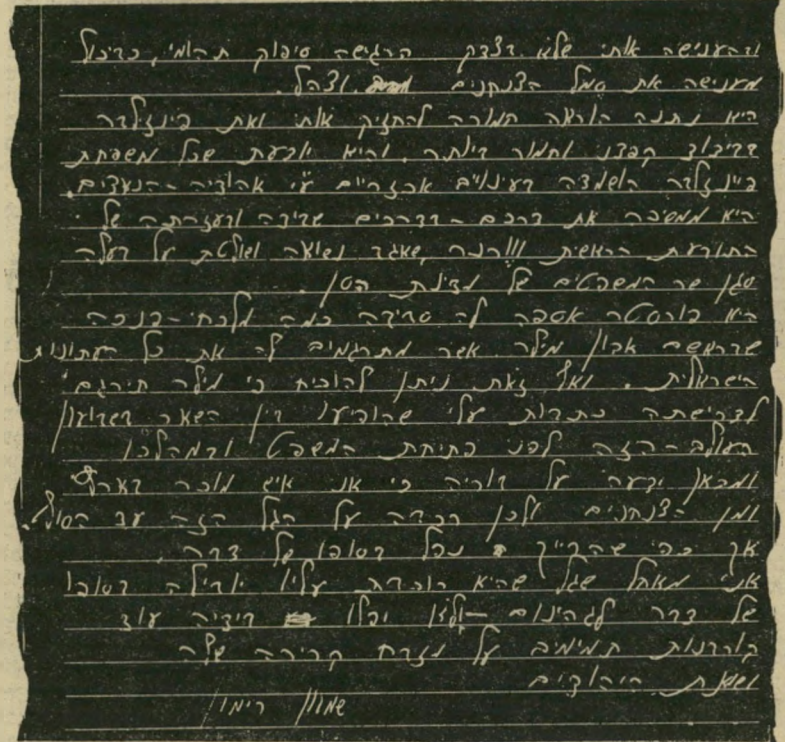 והענישה אותי שלא בצדק הרגישה סיפוק תהומי, כביכול
מענישה את סמל הצנחנים וצהל.
היא נתנה הוראה חמורה להחזיק אותי ואת
בבידוד קפדני וחמור ביותר. והיא יודעת שכל משפחת
הושמדה בעינויים אכזריים ע"י אהודיה הנאצים.
היא ממשיכה את דרכם בדרכים שלידה ובעזרתה של
התובעת הראשית !!! שאגב נשואה ושולטת על בעלה
סגן שר המשפטים של מדינת הסן.
היא אספה לה סביבה כמה מלחכי פנכה
שבראשם מילר אשר מתרגמים לה את כל העתונות
הישראלית. ואף זאת ניתן להוכיח כי מילר תירגם
לבקשתה כתבות עלי שהופיעו בין השאר בשבועון
העולם הזה לפני פתיחת המשפט ובמהלכו
ומכאן ידעה על בוריה כי אני איש מוכר בארץ
ומן הצנחנים ולכן רכבה על הגל הזה עד הסוף.
אך כפי שהקייק נפל בסופו של דבר,
אני מאחל שגל שהיא רוכבת עליו יובילה בסופו
של דבר לגהינום ולא יפלו בידיה עוד
קורבנות תמימים על מזבח קריירה שלה
ושנאת היהודים
שמעון רימון